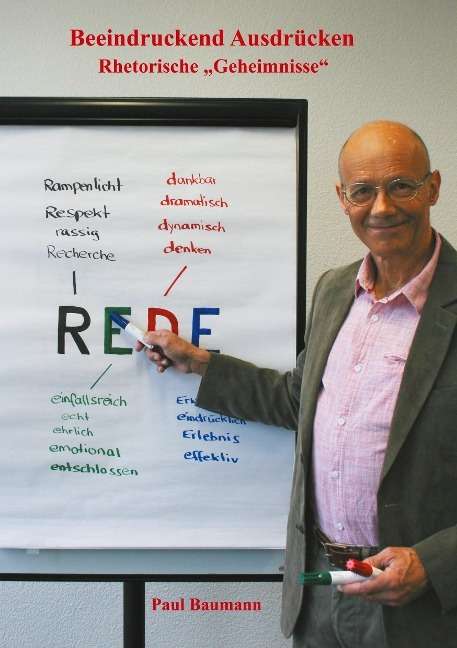 Beeindruckend Ausdrücken
Rhetorische „Geheimnisse“
Rampenlicht
Respekt
rassig
Recherche
dankbar
dramatisch
dynamisch
denken
REDE
einfallsreich
echt
ehrlich
emotional
entschlossen
eindrücklich
Erlebnis
effektiv
Paul Baumann